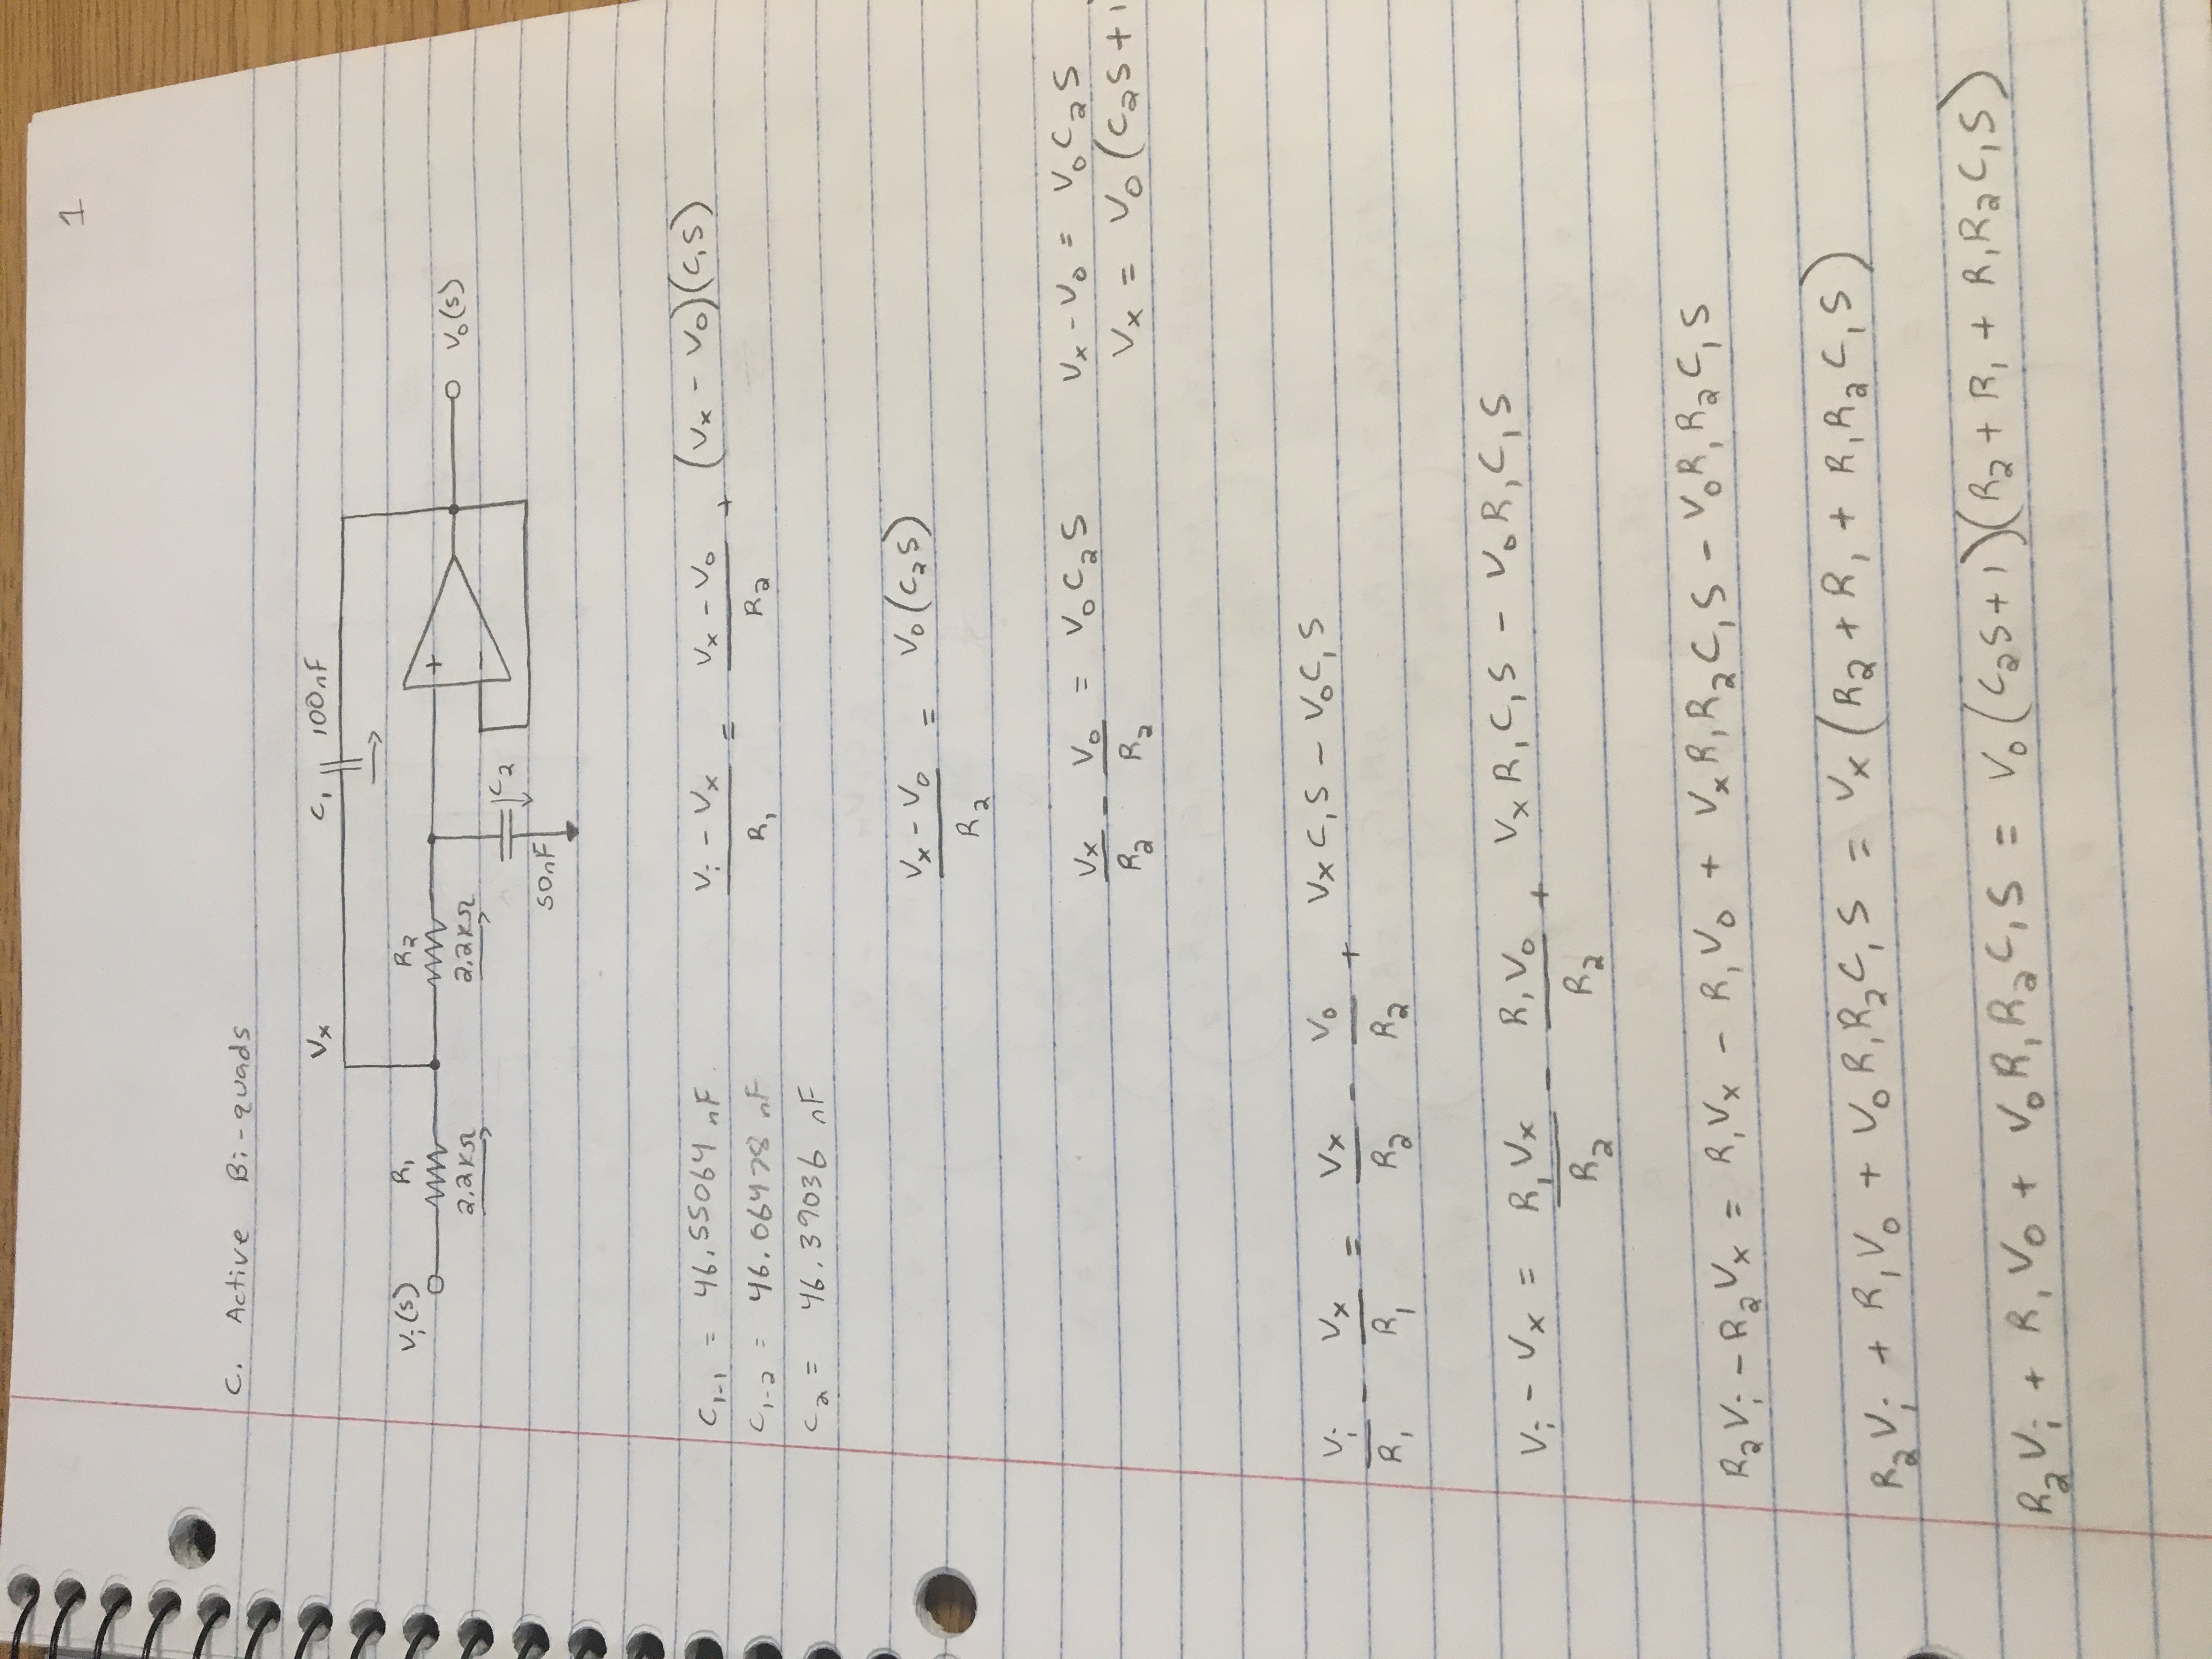 1
C. Active Bi-quads
Vx C1 100nF
Vi(s) R1 R2
+ Vo(s)
2.2KΩ 2.2KΩ -
C2
50nF
C1-1 = 46.55064 nF
C1-2 = 46.06478 nF
C2 = 46.39036 nF
(Vi - Vx)/R1 = (Vx - Vo)/R2 + (Vx - Vo)(C1S)
(Vx - Vo)/R2 = Vo(C2S)
Vx/R2 - Vo/R2 = VoC2S
Vx - Vo = VoC2S
Vx = Vo(C2S+1
Vi/R1 - Vx/R1 = Vx/R2 - Vo/R2 + VxC1S - VoC1S
Vi - Vx = R1Vx/R2 - R1Vo/R2 + VxR1C1S - VoR1C1S
R2Vi - R2Vx = R1Vx - R1Vo + VxR1R2C1S - VoR1R2C1S
R2Vi + R1Vo + VoR1R2C1S = Vx(R2 + R1 + R1R2C1S)
R2Vi + R1Vo + VoR1R2C1S = Vo(C2S+1)(R2 + R1 + R1R2C1S)